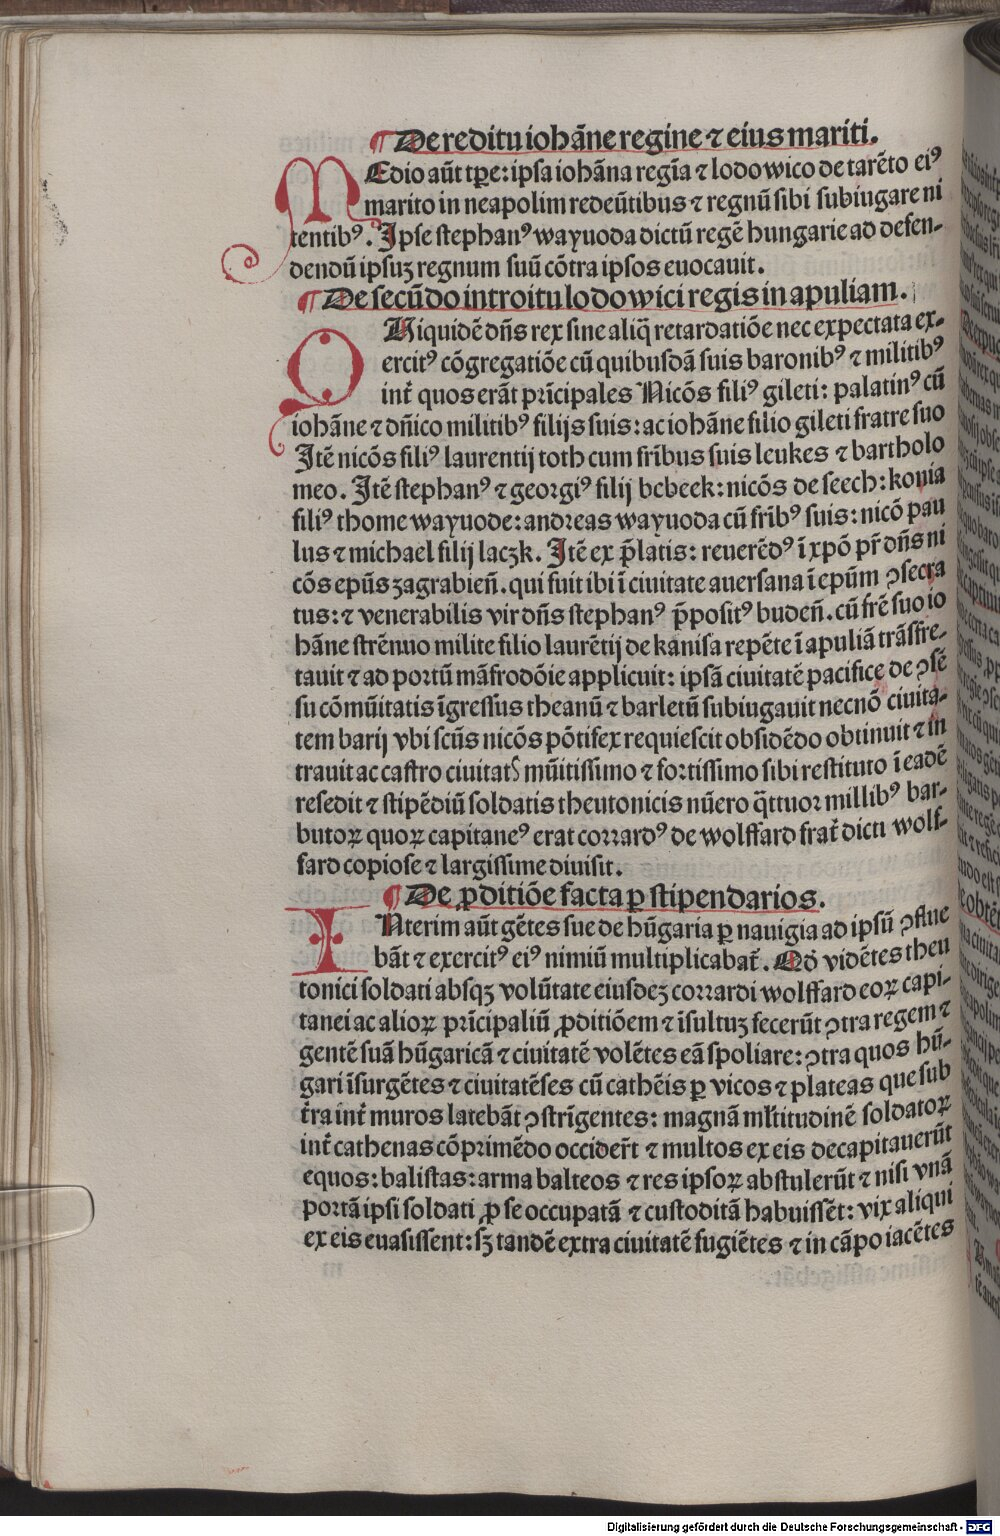 ¶ De reditu iohãne regine ⁊ eius mariti.
MEdio aũt tꝑe: ipsa iohãna regĩa ⁊ lodowico de tarẽto eiꝰ
marito in neapolim redeũtibus ⁊ regnũ sibi subiugare ni
tentibꝰ. Ipse stephanꝰ wayuoda dictũ regẽ hungarie ad defen-
dendũ ipsuꝫ regnum suũ cõtra ipsos euocauit.
¶ De secũdo introitu lodowici regis in apuliam.
QUiquidẽ dñs rex sine aliq̃ retardatiõe nec expectata ex-
ercitꝰ cõgregatiõe cũ quibusdã suis baronibꝰ ⁊ militibꝰ
int̃ quos erãt prĩcipales Nicõs filiꝰ gileti: palatinꝰ cũ
iohãne ⁊ dñico militibꝰ filijs suis: ac iohãne filio gileti fratre suo
Itẽ nicõs filiꝰ laurentij toth cum frĩbus suis leukes ⁊ bartholo
meo. Itẽ stephanꝰ ⁊ georgiꝰ filij bcbeek: nicõs de seech: konia
filiꝰ thome wayuode: andreas wayuoda cũ frĩbꝰ suis: nicõ pau
lus ⁊ michael filij laczk. Itẽ ex p̃latis: reuerẽdꝰ ĩ xp̃o pr̃ dñs ni
cõs ep̃us zagrabieñ. qui fuit ibi ĩ ciuitate auersana ĩ ep̃um ꝯsecra
tus: ⁊ venerabilis vir dñs stephanꝰ p̃positꝰ budeñ. cũ frẽ suo io
hãne strẽnuo milite filio laurẽtij de kanisa repẽte ĩ apuliã trãsfre-
tauit ⁊ ad portũ mãfrodõie applicuit: ipsã ciuitatẽ pacifice de ꝯsẽ
su cõmũitatis ĩgressus theanũ ⁊ barletũ subiugauit necnõ ciuita-
tem barij vbi scũs nicõs põtifex requiescit obsidẽdo obtinuit ⁊ in
trauit ac castro ciuitatꝭ mũitissimo ⁊ fortissimo sibi restituto ĩ eadẽ
resedit ⁊ stipẽdiũ soldatis theutonicis nũero q̃ttuor millibꝰ bar-
butoꝝ quoꝝ capitaneꝰ erat corrardꝰ de wolffard frat̃ dicti wolf-
fard copiose ⁊ largissime diuisit.
¶ De ꝓditiõe facta ꝑ stipendarios.
INterim aũt gẽtes sue de hũgaria ꝑ nauigia ad ipsũ ꝯflue
bãt ⁊ exercitꝰ eiꝰ nimiũ multiplicabat̃. Qđ vidẽtes theu
tonici soldati absqꝫ volũtate eiusdeꝫ corrardi wolffard eoꝝ capi-
tanei ac alioꝝ prĩcipaliũ ꝓditiõem ⁊ ĩsultuꝫ fecerũt ꝯtra regem ⁊
gentẽ suã hũgaricã ⁊ ciuitatẽ volẽtes eã spoliare: ꝯtra quos hũ-
gari ĩsurgẽtes ⁊ ciuitatẽses cũ cathẽis ꝑ vicos ⁊ plateas que sub
t̃ra int̃ muros latebãt ꝯstrĩgentes: magnã ml̃titudinẽ soldatoꝝ
int̃ cathenas cõprimẽdo occider̃t ⁊ multos ex eis decapitauerũt
equos: balistas: arma balteos ⁊ res ipsoꝝ abstulerũt ⁊ nisi vnã
portã ipsi soldati ꝓ se occupatã ⁊ custoditã habuissẽt: vix aliqui
ex eis euasissent: sꝫ tandẽ extra ciuitatẽ fugiẽtes ⁊ in cãpo iacẽtes
Digitalisierung gefördert durch die Deutsche Forschungsgemeinschaft - DFG